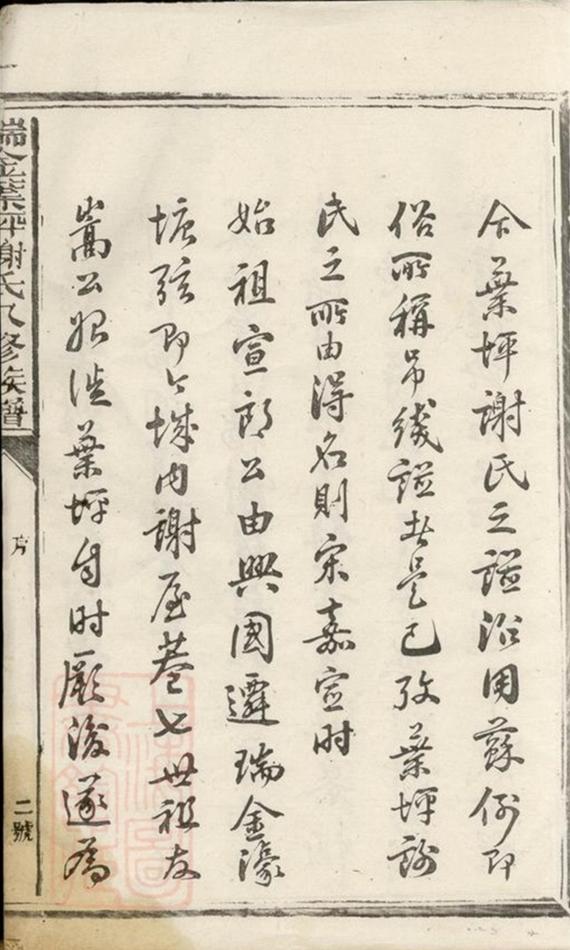 今葉坪謝氏之譜沿用蘇例即
俗所稱吊綫譜者是已攷葉坪謝
氏之所由得名則宋嘉定时
始祖宣郎公由興國遷瑞金濠
塘弦即今城内謝屋巷七世祖友
嵩公始徙葉坪自时厥後遂為
瑞金葉坪謝氏八修族譜
序
二號